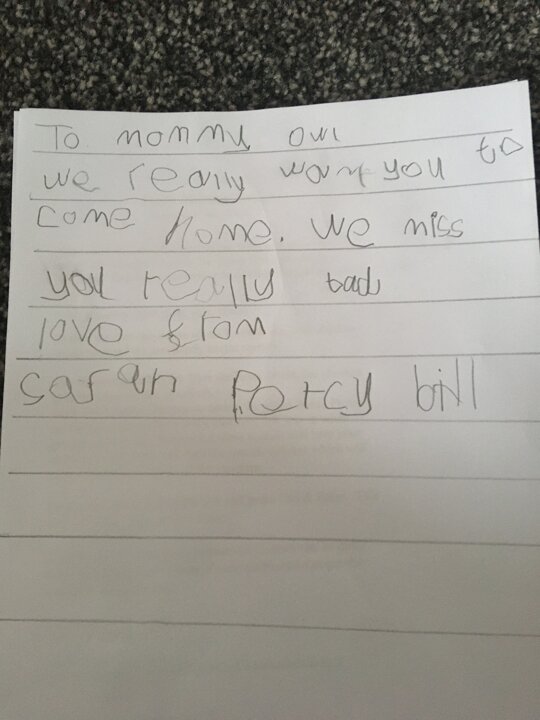 To mommy owl
we really want you to
come home. we miss
you really bad
love from
sarah Percy bill